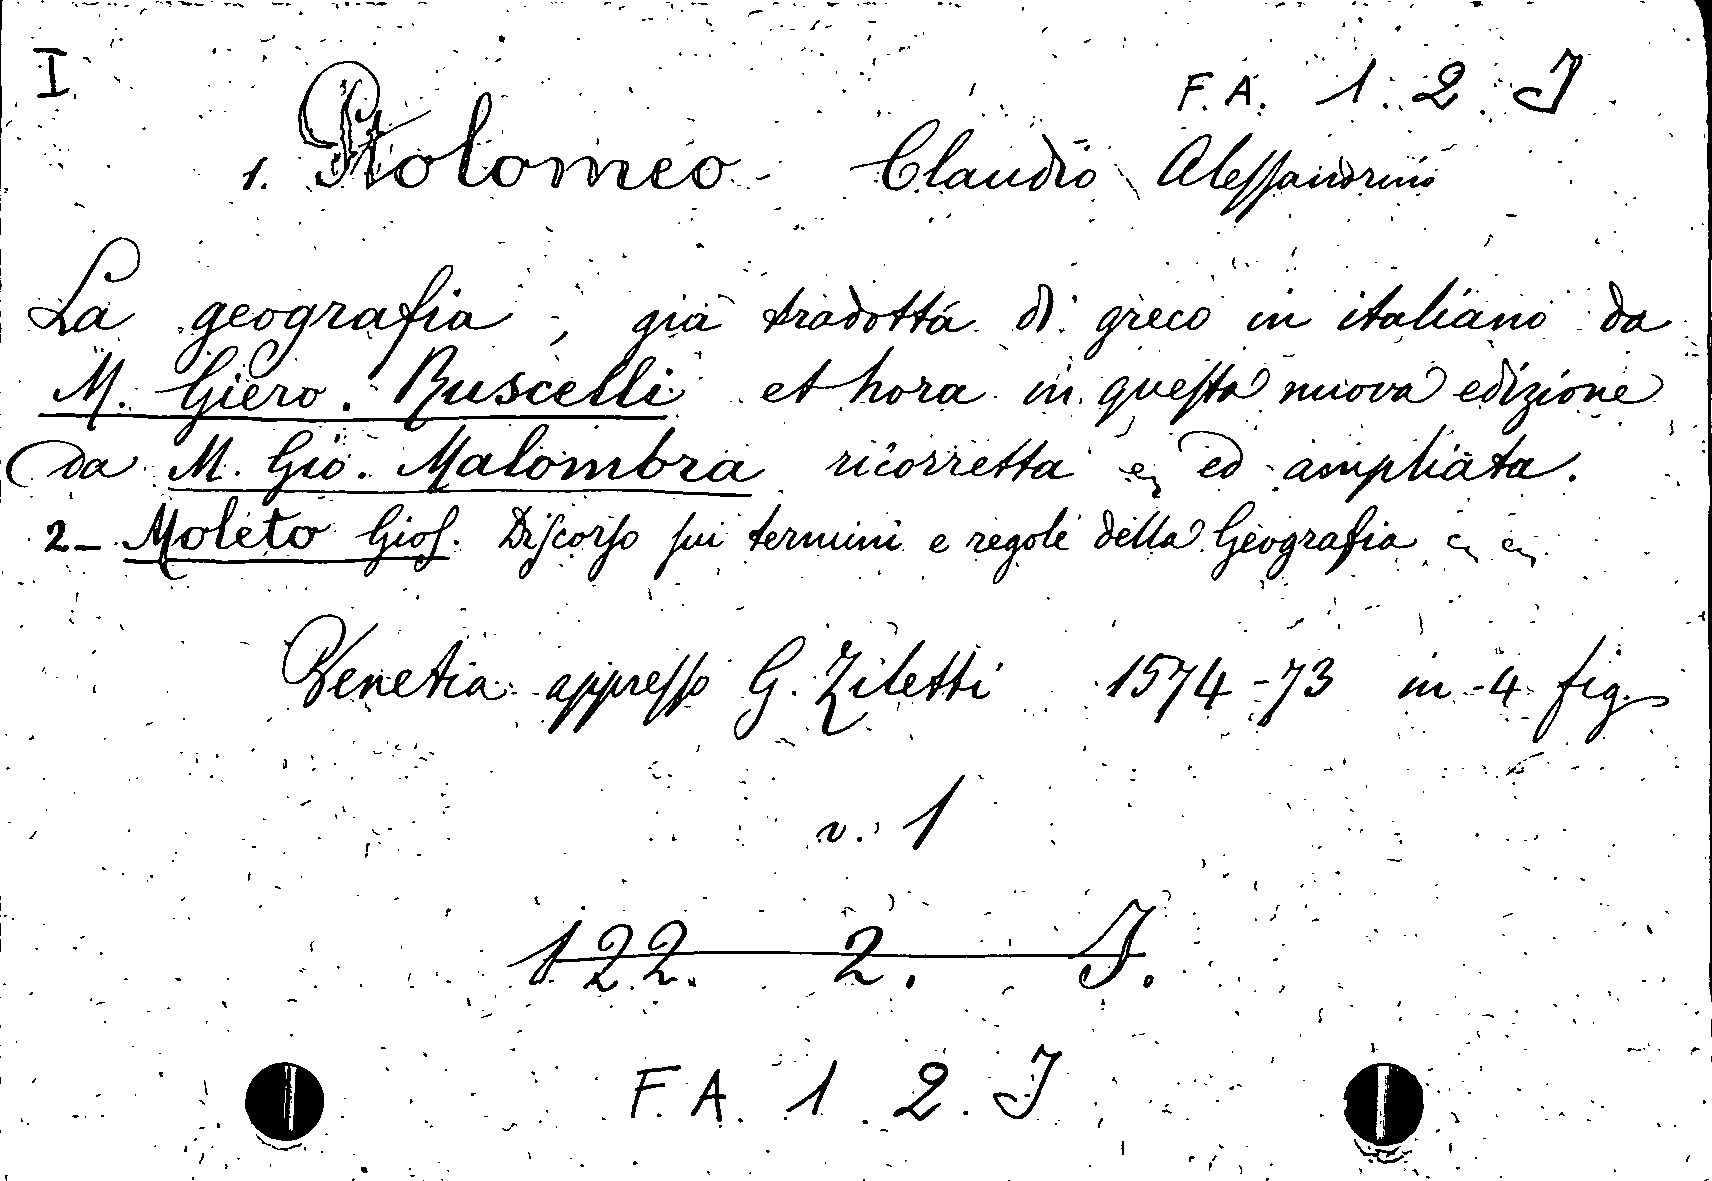 I
F. A. 1. 2. J
1. Ptolomeo Claudio Alessandrino
La geografia, già tradotta di greco in italiano da
M. Giero. Ruscelli et hora in questa nuova edizione
da M. Gio. Malombra ricorretta e ed ampliata.
2- Moleto Gios. Discorso sui termini e regole della Geografia
Venetia appresso G. Ziletti 1574-73 in-4 fig.
v. 1
122. 2. J.
F. A. 1 2. J